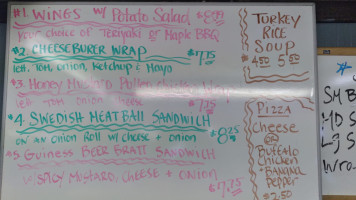 #1 WINGS W/ Potato Salad $8.99
your choice of Teriyaki or Maple BBQ
#2 CHEESEBURER WRAP $7.75
lett, Tom, onion, Ketchup & Mayo
#3 Honey Mustard Pulled chicken Wrap
lett tom onion $7.75
#4 SWEDISH MEATBALL SANDWICH
ON AN ONION ROLL W/ CHEESE + ONION $8.25
#5 Guiness BEER BRATT SANDWICH
W/ SPICY MUSTARD, CHEESE + ONION
$7.75
TURKEY
RICE
SOUP
$4.50 5.50
PIZZA
cheese
OR
BUFFALO
Chicken
+ BANANA
PEPPER
$2.50